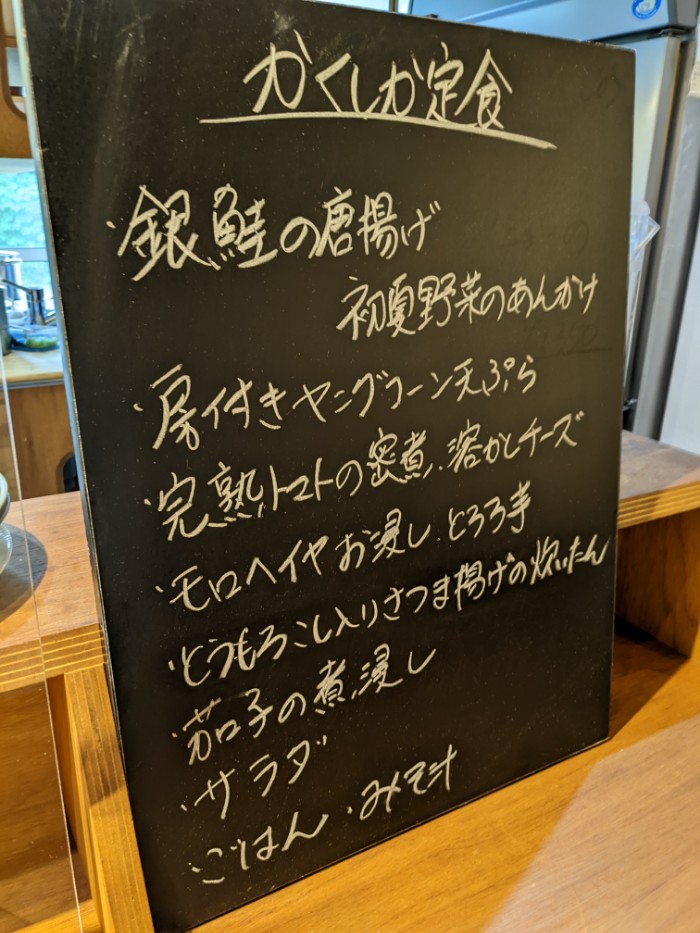 かくしか定食
・銀鮭の唐揚げ
初夏野菜のあんかけ
・房付きヤングコーン天ぷら
・完熟トマトの蜜煮、溶かしチーズ
・モロヘイヤお浸し、とろろ芋
・とうもろこし入りさつま揚げの炊いたん
・茄子の煮浸し
・サラダ
・ごはん・みそ汁